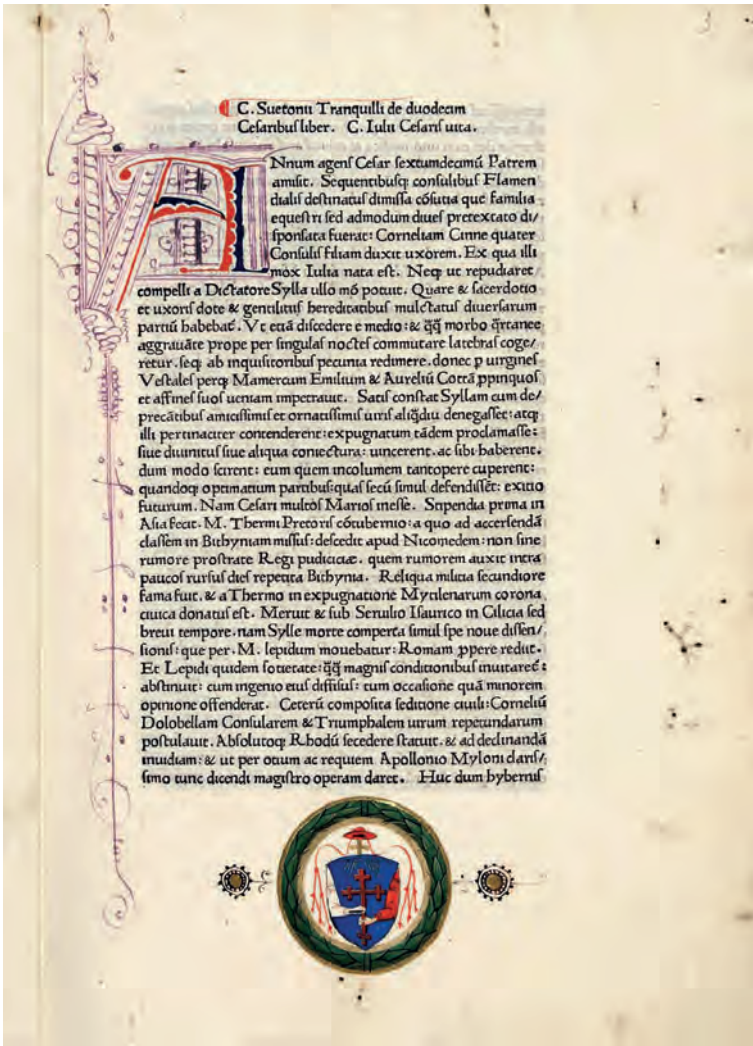 3
C. Suetonii Tranquilli de duodecim
Cesaribus liber. C. Iulii Cesaris uita.
ANnum agens Cesar sextumdecimū Patrem
amisit. Sequentibusq; consulibus Flamen
dialis destinatus dimissa cōsutia que familia
equestri sed admodum diues pretextato di/
sponsata fuerat: Corneliam Cinne quater
Consulis filiam duxit uxorem. Ex qua illi
mox Iulia nata est. Neq; ut repudiaret
compelli a Dictatore Sylla ullo mō potuit. Quare & sacerdotio
et uxoris dote & gentilitiis hereditatibus mulctatus diuersarum
partiū habebat̄. Vt etiā discedere e medio: & q̄q̄ morbo q̄rtanee
aggrauāte prope per singulas noctes commutare latebras coge/
retur. seq; ab inquisitoribus pecunia redimere. donec p uirgines
Vestales perq; Mamercum Emilium & Aureliū Cottā ppinquos
et affines suos ueniam impetrauit. Satis constat Syllam cum de/
precātibus amicissimis et ornatissimis uiris aliq̄diu denegasset: atq;
illi pertinaciter contenderent: expugnatum tādem proclamasse:
siue diuinitus siue aliqua coniectura: uincerent. ac sibi haberent.
dum modo scirent: eum quem incolumem tantopere cuperent:
quandoq; optimatium partibus: quas secū simul defendissēt: exitio
futurum. Nam Cesari multos Marios inesse. Stipendia prima in
Asia fecit. M. Thermi Pretoris cōtubernio: a quo ad accersendā
classem in Bithyniam missus: descedit apud Nicomedem: non sine
rumore prostrate Regi pudiciciæ. quem rumorem auxit intra
paucos rursus dies repetita Bithynia. Reliqua militia secundiore
fama fuit. & a Thermo in expugnatione Mytilenarum corona
ciuica donatus est. Meruit & sub Seruilio Isaurico in Cilicia sed
breui tempore. nam Sylle morte comperta simul spe noue dissen/
sionis: que per. M. lepidum mouebatur: Romam ppere rediit.
Et Lepidi quidem societate: q̄q̄ magnis conditionibus inuitaret̄:
abstinuit: cum ingenio eius diffisus: tum occasione quā minorem
opinione offenderat. Ceterū composita seditione ciuili: Corneliū
Dolobellam Consularem & Triumphalem uirum repetundarum
postulauit. Absolutoq; Rhodū secedere statuit. & ad declinandā
inuidiam: & ut per otium ac requiem Apollonio Myloni claris/
simo tunc dicendi magistro operam daret. Huc dum hybernis